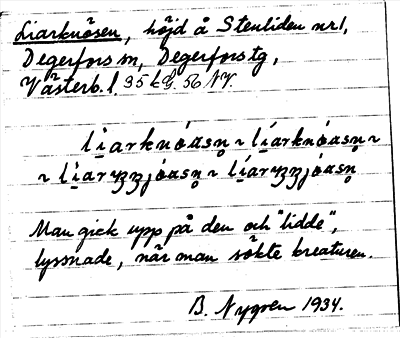 Liarknösen, höjd å Stenliden nr 1,
Degerfors sn, Degerfors tg,
Västerb. l. 35 kg. 56 NV.
li̱arknóasn̥ ~ lí̱arknóasn̥ ~
~ li̱arʒʒjóasn̥ ~ lí̱arʒʒjóasn̥
Man gick upp på den och "lidde",
lyssnade, när man sökte kreaturen.
B. Nygren 1934.